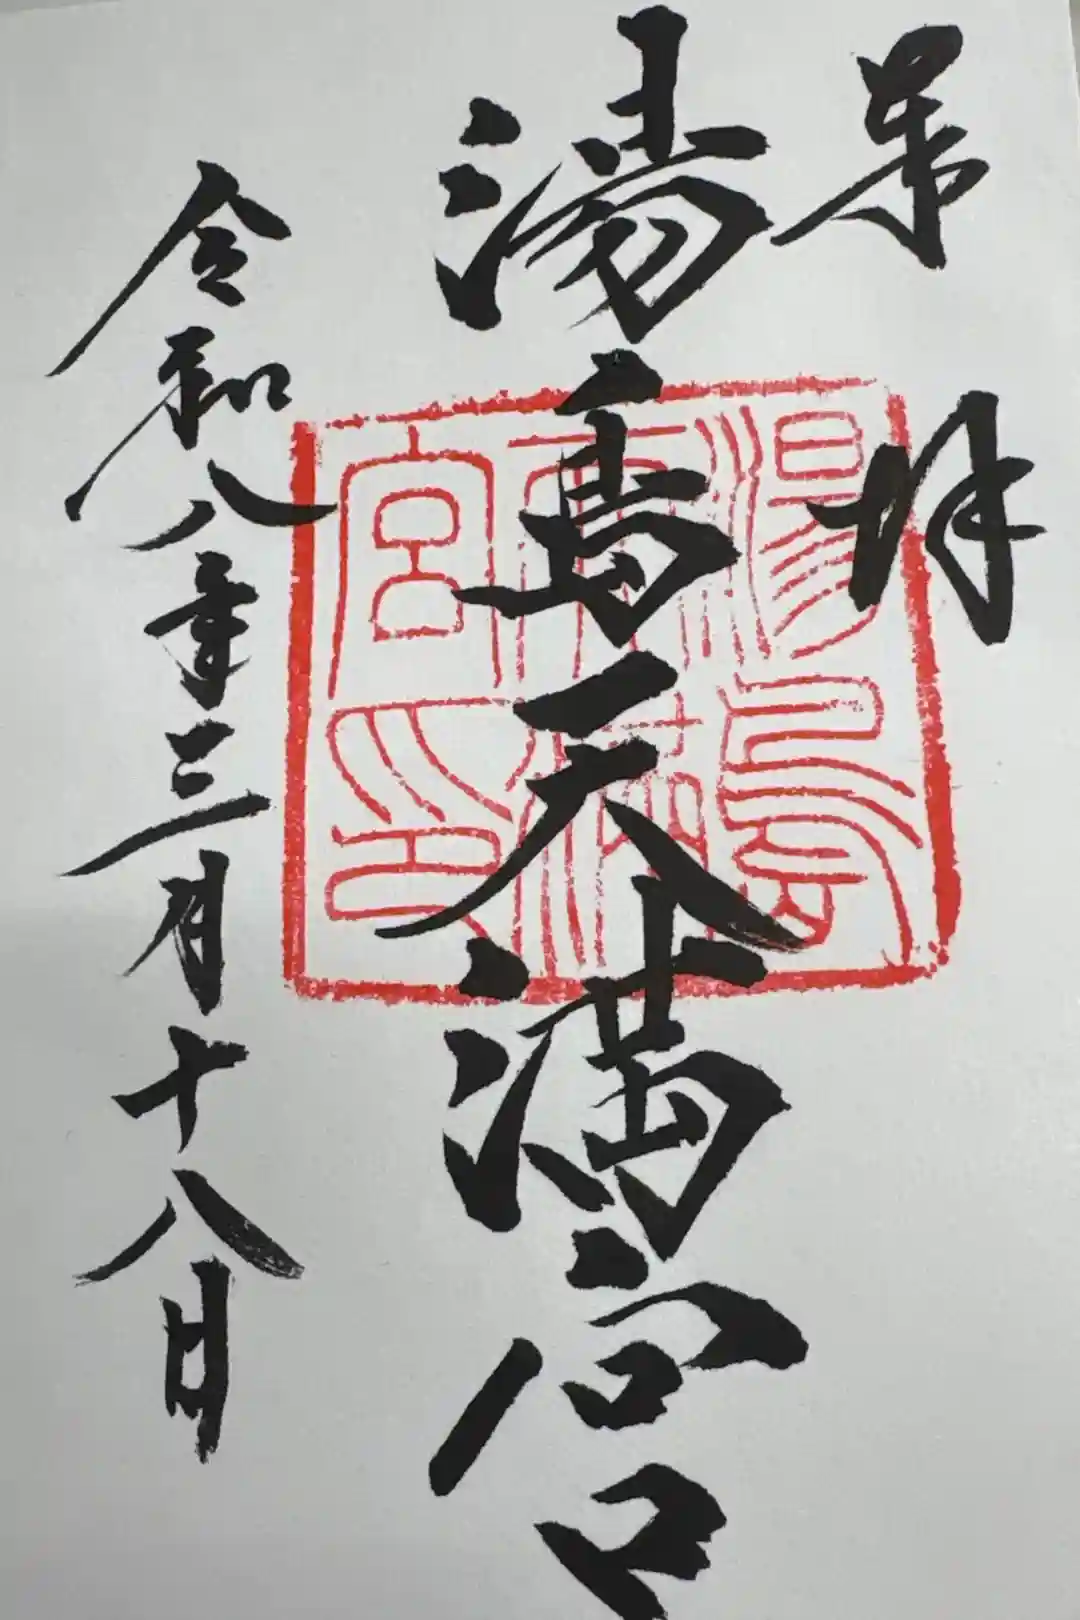 奉拝
湯島天満宮
令和八年三月十八日
湯島
天神
宮印